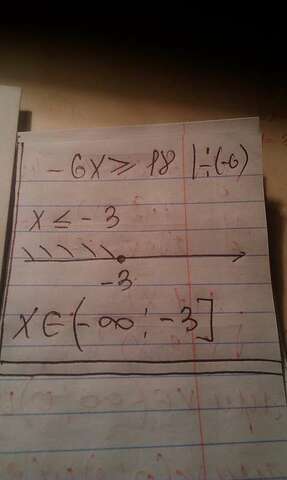 -6x ≥ 18 |÷(-6)
x ≤ -3
-3
x∈(-∞; -3]